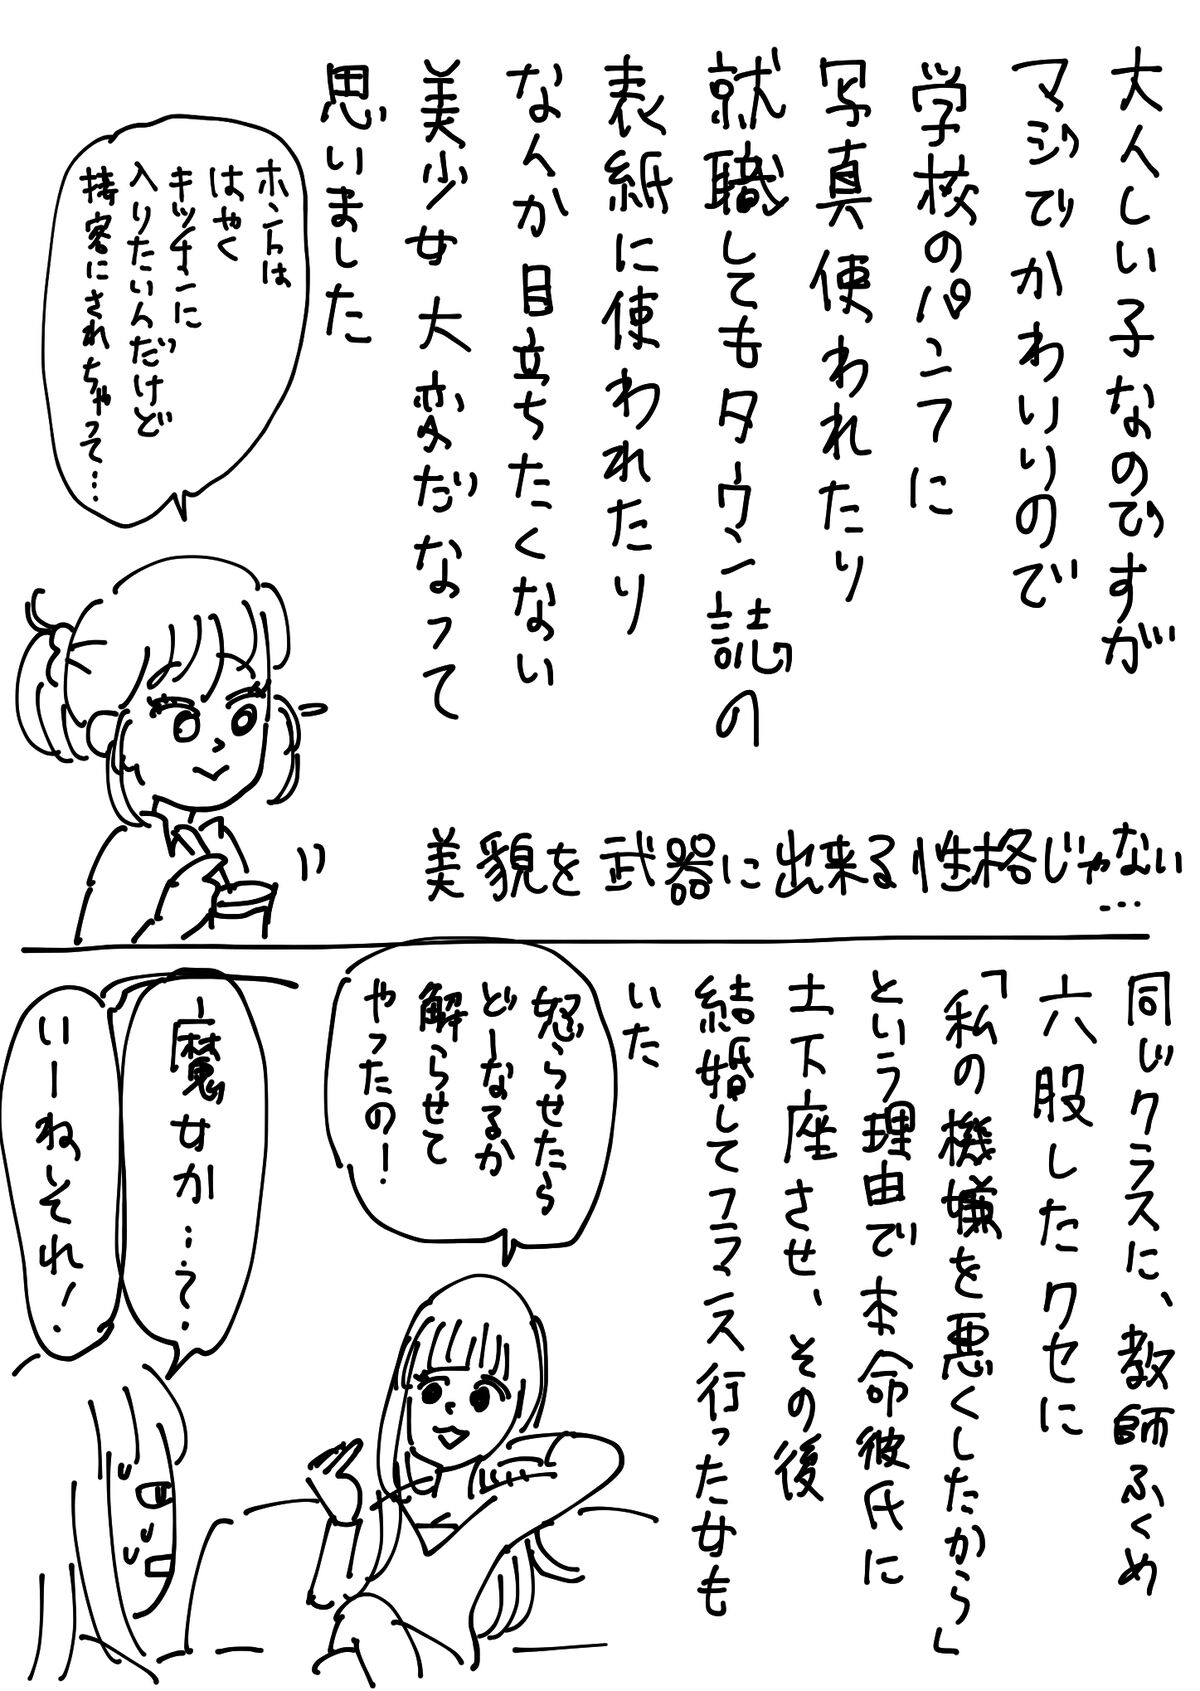 大人しい子なのですが
マジでかわいいので
学校のパンフに
写真使われたり
就職してもタウン誌の
表紙に使われたり
なんか目立ちたくない
美少女大変だなって
思いました
ホントは
はやく
キッチンに
入りたいんだけど
接客にされちゃって…
美貌を武器に出来る性格じゃない
…
同じクラスに、教師ふくめ
六股したクセに
「私の機嫌を悪くしたから」
という理由で本命彼氏に
土下座させ、その後
結婚してフランス行った女も
いた
怒らせたら
どーなるか
解らせて
やったの!
魔女か…?
いーねそれ!